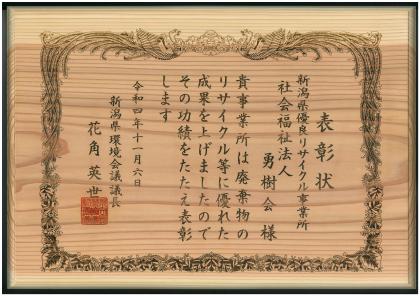 表彰状
新潟県優良リサイクル事業所
社会福祉法人
勇樹会 様
貴事業所は廃棄物の
リサイクル等に優れた
成果を上げましたので
その功績をたたえ表彰
します
令和四年十一月六日
新潟県環境会議議長
花角英世